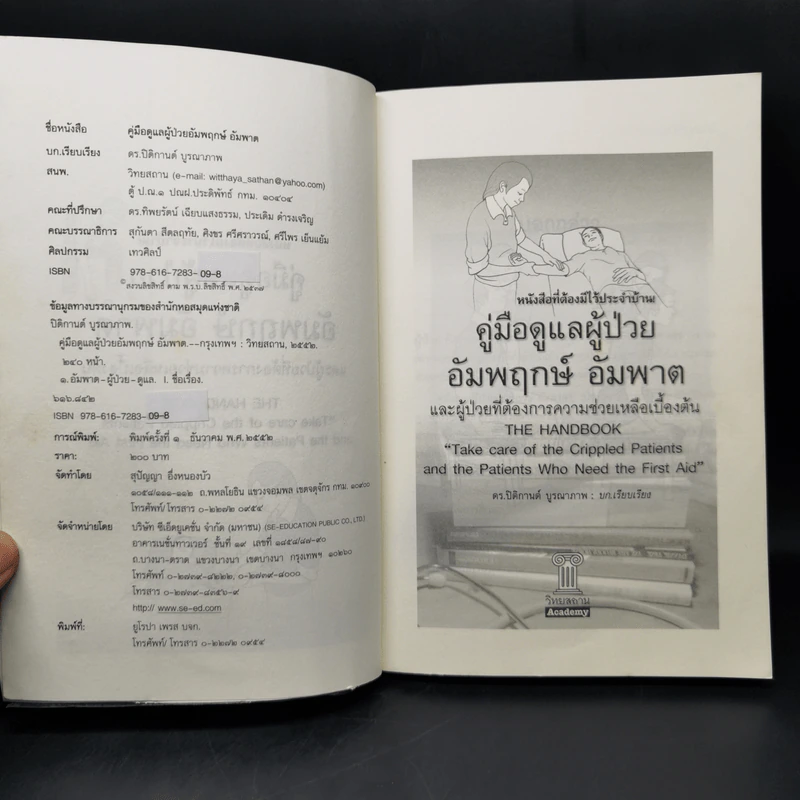 ชื่อหนังสือ คู่มือดูแลผู้ป่วยอัมพฤกษ์ อัมพาต
บก.เรียบเรียง ดร.ปิติกานต์ บูรณาภาพ
สนพ. วิทยสถาน (e-mail: witthaya_sathan@yahoo.com)
ตู้ ป.ณ.๑ ปณฝ.ประดิพัทธ์ กทม. ๑๐๔๐๔
คณะที่ปรึกษา ดร.ทิพยรัตน์ เฉียบแสงธรรม, ประเดิม ดำรงเจริญ
คณะบรรณาธิการ สุกันดา สีตลฤทัย, ศิงขร ศรีศราวรณ์, ศรีไพร เย็นแย้ม
ศิลปกรรม เทวศิลป์
ISBN 978-616-7283-09-8
©สงวนลิขสิทธิ์ ตาม พ.ร.บ.ลิขสิทธิ์ พ.ศ. ๒๕๓๗
ข้อมูลทางบรรณานุกรมของสำนักหอสมุดแห่งชาติ
ปิติกานต์ บูรณาภาพ.
คู่มือดูแลผู้ป่วยอัมพฤกษ์ อัมพาต.--กรุงเทพฯ : วิทยสถาน, ๒๕๕๒.
๒๔๐ หน้า.
๑. อัมพาต-ผู้ป่วย-ดูแล. I. ชื่อเรื่อง.
๖๑๖.๘๔๒
ISBN 978-616-7283-09-8
การณ์พิมพ์: พิมพ์ครั้งที่ ๑ ธันวาคม พ.ศ. ๒๕๕๒
ราคา: ๒๐๐ บาท
จัดทำโดย สุปัญญา อึ่งหนองบัว
๑๐๕๔/๑๑๑-๑๑๒ ถ.พหลโยธิน แขวงจอมพล เขตจตุจักร กทม. ๑๐๙๐๐
โทรศัพท์/โทรสาร ๐-๒๒๗๒ ๐๙๕๔
จัดจำหน่ายโดย บริษัท ซีเอ็ดยูเคชั่น จำกัด (มหาชน) (SE-EDUCATION PUBLIC CO., LTD.)
อาคารเนชั่นทาวเวอร์ ชั้นที่ ๑๙ เลขที่ ๑๘๕๘/๘๗-๙๐
ถ.บางนา-ตราด แขวงบางนา เขตบางนา กรุงเทพฯ ๑๐๒๖๐
โทรศัพท์ ๐-๒๗๓๙-๘๒๒๒, ๐-๒๗๓๙-๘๐๐๐
โทรสาร ๐-๒๗๓๙-๘๓๕๖-๙
http://www.se-ed.com
พิมพ์ที่: ยูโรปา เพรส บจก.
โทรศัพท์/ โทรสาร ๐-๒๒๗๒ ๐๙๕๔
หนังสือที่ต้องมีไว้ประจำบ้าน!
คู่มือดูแลผู้ป่วย
อัมพฤกษ์ อัมพาต
และผู้ป่วยที่ต้องการความช่วยเหลือเบื้องต้น
THE HANDBOOK
"Take care of the Crippled Patients
and the Patients Who Need the First Aid"
ดร.ปิติกานต์ บูรณาภาพ : บก.เรียบเรียง
วิทยสถาน
Academy